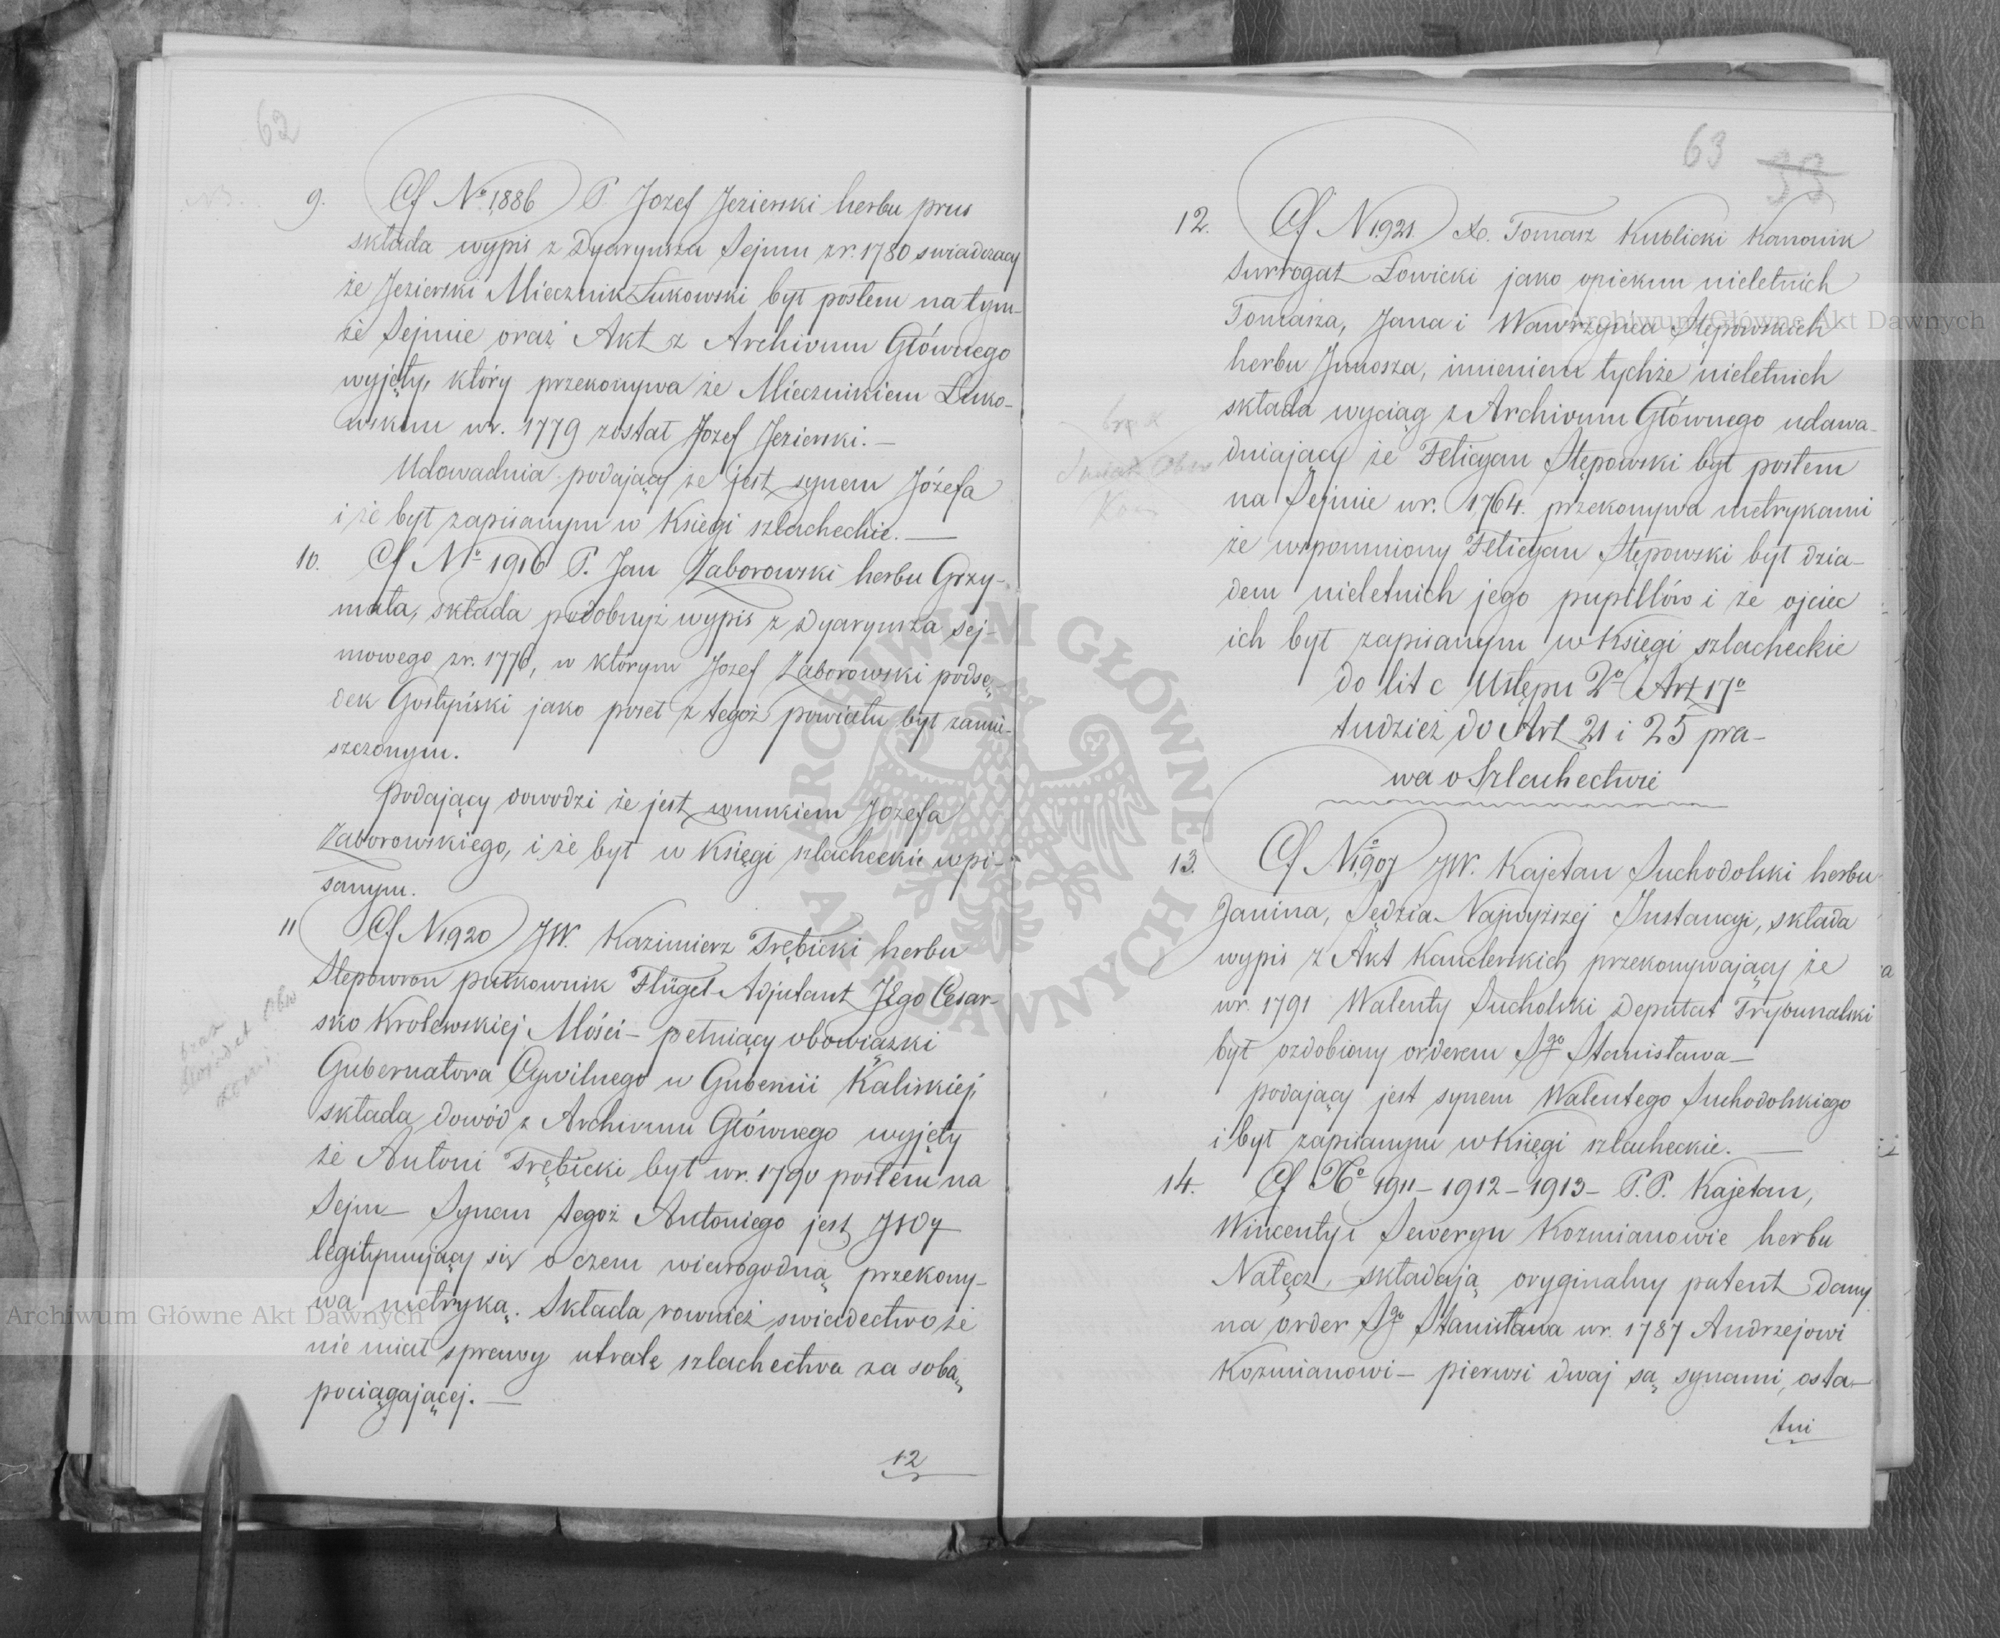 62
9. Cf Nº 1886 P. Jozef Jezierski herbu prus
składa wypis z Dyaryusza Sejmu z r. 1780 swiadczący
że Jezierski Miecznik Łukowski był posłem na tym-
że Sejmie oraz Akt z Archivum Głównego
wyjęty, który przekonywa że Miecznikiem Łuko-
wskim w r. 1779 został Jozef Jezierski. —
Udowadnia podający że jest synem Józefa
i że był zapisanym w Księgi szlacheckie. —
10. Cf Nº 1916 P. Jan Zaborowski herbu Grzy-
mała, składa podobnyż wypis z Dyaryusza sej-
mowego z r. 1776, w którym Jozef Zaborowski podsę-
dek Gostyński jako poseł z tegoż powiatu był zamie-
szczonym.
podający dowodzi że jest wnukiem Jozefa
Zaborowskiego, i że był w Księgi szlacheckie wpi-
sanym.
11 Cf N 1920 JW. Kazimierz Trębicki herbu
Slepowron pułkownik Flügel Adjutant JEgo Cesar-
sko Krolewskiej Mości — pełniący obowiązki
Gubernatora Cywilnego w Gubernii Kaliskiej,
składa dowód z Archivum Głównego wyjęty
że Antoni Trębicki był w r. 1790 posłem na
Sejm — Synem tegoż Antoniego jest JWy
legitymujący się o czem wiarogodną przekony-
wa metryką. Składa rownież swiadectwo że
nie miał sprawy utratę szlachectwa za sobą
pociągającej. —
12
brak
Obw
63 33
12. Cf N 1921 X. Tomasz Kublicki Kanonik
Surrogat Łowicki jako opiekun nieletnich
Tomasza, Jana i Wawrzyńca Stępowskich
herbu Junosza, imieniem tychże nieletnich
składa wyciąg z Archivum Głównego udawa-
dniający że Felicyan Stępowski był posłem
na Sejmie w r. 1764. przekonywa metrykami
że wspomniony Felicyan Stępowski był dzia-
dem nieletnich jego pupillów i że ojciec
ich był zapisanym w Księgi szlacheckie
do lit c Ustępu 2º Art 17º
tudzież do Art 21 i 25 pra-
wa o Szlachectwie
13. Cf Nº 1907 JW. Kajetan Suchodolski herbu
Janina, Sędzia Najwyższej Instancyi, składa
wypis z Akt Kanclerskich przekonywający że
w r. 1791 Walenty Sucholski Deputat Trybunalski
był ozdobiony orderem Sgo Stanisława —
podający jest synem Walentego Suchodolskiego
i był zapisanym w Księgi szlacheckie. —
14. Cf Nº 1911 — 1912 — 1913 — P.P. Kajetan,
Wincenty i Seweryn Kozmianowie herbu
Nałęcz, składają oryginalny patent dany
na order Sgo Stanisława w r. 1787 Andrzejowi
Kozmianowi — pierwsi dwaj są synami, osta-
tni
brak
Swiad. Obw
Kon
Archiwum Główne Akt Dawnych
Archiwum Główne Akt Dawnych
ARCHIWUM GŁÓWNE AKT DAWNYCH